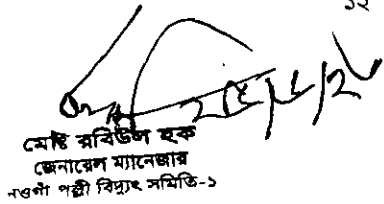 ১২
মোঃ রবিউল হক
জেনারেল ম্যানেজার
নওগাঁ পল্লী বিদ্যুৎ সমিতি-১